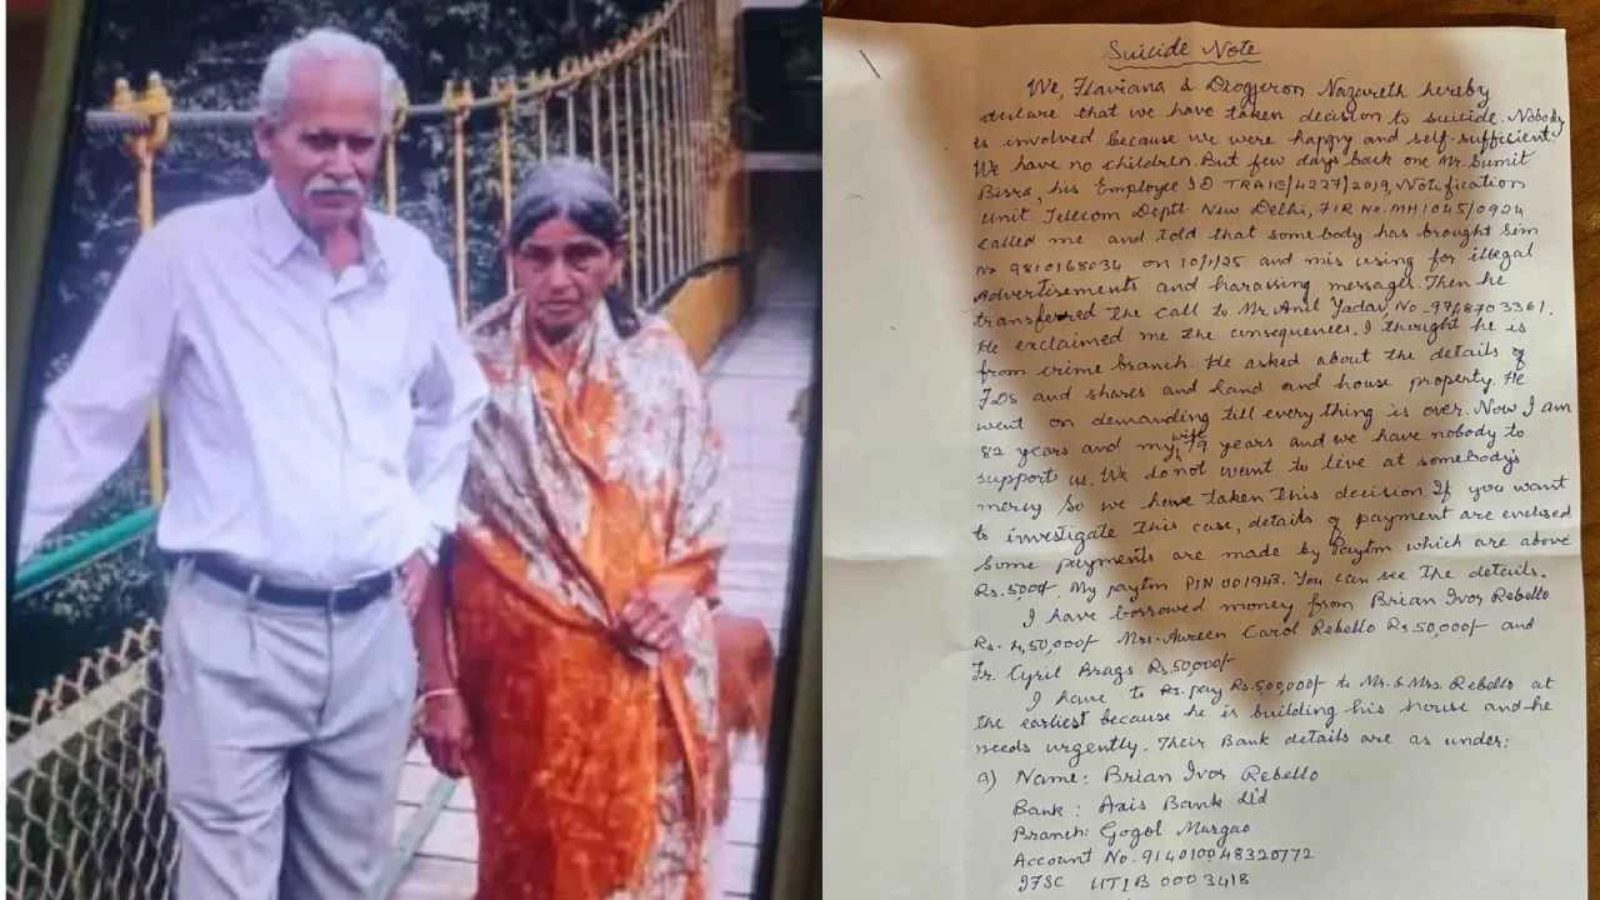 Suicide Note
We, Flaviana & Diogjeron Nazareth hereby
declare that we have taken decision to suicide. Nobody
is involved because we were happy and self-sufficient
We have no children. But few days back one Mr. Sumit
Birra, his Employee ID TRAIE/4227/2019, Notification
Unit Telecom Deptt. New Delhi, FIR No. MH1045/0924
called me and told that somebody has brought sim
No 9810168034 on 10/1/25 and mis using for illegal
Advertisements and harassing messages. Then he
transferred the call to Mr. Anil Yadav, No -9768703361.
He exclaimed me the consequences. I thought he is
from crime branch. He asked about the details of
FDS and shares and land and house property. He
went on demanding till every thing is over. Now I am
82 years and my wife 79 years and we have nobody to
support us. We do not want to live at somebody's
mercy so we have taken this decision If you want
to investigate this case, details of payment are enclosed
Some payments are made by Paytm which are above
Rs. 5000/-. My paytm PIN 001943. You can see the details.
I have borrowed money from Brian Ivor Rebello
Rs. 4,50,000/- Mrs. Aureen Carol Rebello Rs 50,000/- and
Fr. Cyril Brags Rs. 50000/-
I have to Rs. pay Rs. 500,000/- to Mr. & Mrs Rebello at
the earliest because he is building his house and he
needs urgently. Their Bank details are as under:
a) Name: Brian Ivor Rebello
Bank: Axis Bank Ltd
Branch: Gogol Margao
Account No. 914010048320772
IFSC UTIB 0003418